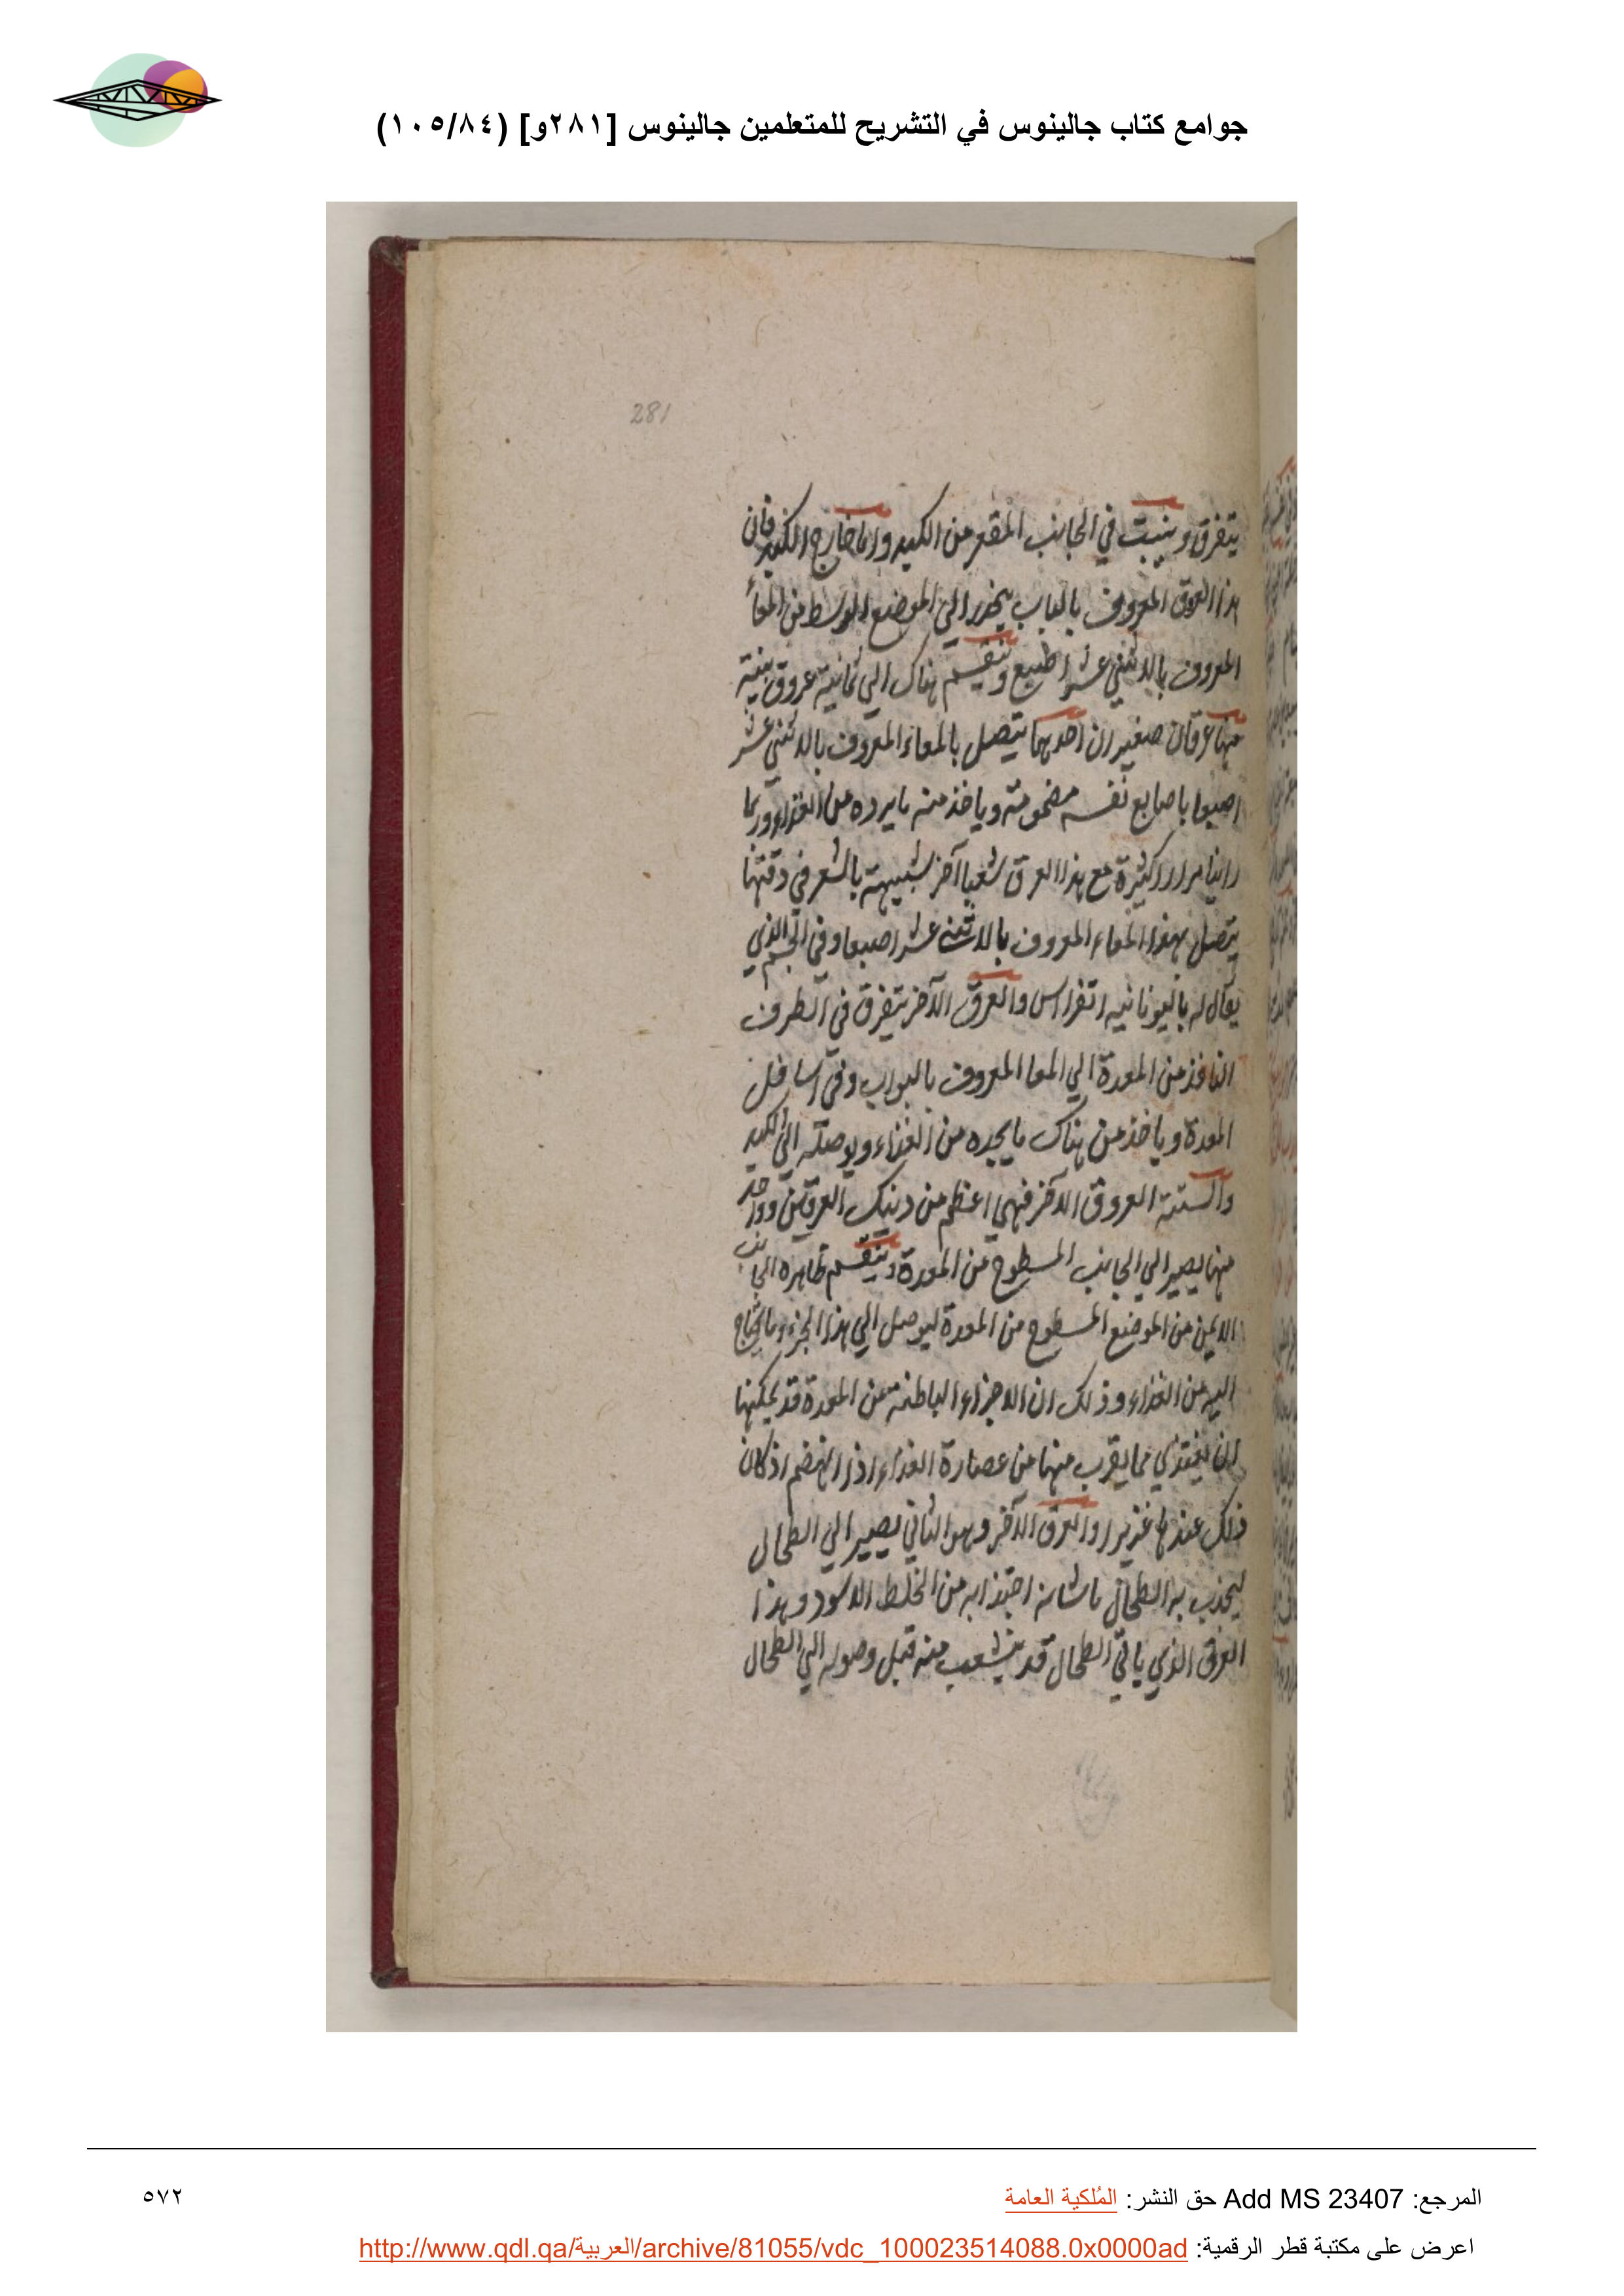 جوامع كتاب جالينوس في التشريح للمتعلمين جالينوس [٢٨١و] (١٠٥/٨٤)
281
يتفرق وينبت في الجانب المقعر من الكبد واما خارج الكبد فان
هذا العرق المعروف بالباب ينحدر الي الموضع الوسط من المعأ
المعروف بالاثني عشر اطبع وينقسم هناك الي ثمانية عروق
منها عرقان صغيران احدهما يتصل بالمعاء المعروف بالاثني عشر
اصبعا باصابع نفسه مضمومة وياخذ منه ما يرده من الغذاء وربما
راينا مرارا كثيرة مع هذا العرق شعبا آخر شبيهة بالشعر في دقتها
يتصل بهذا المعاء المعروف بالاثني عشر اصبعا وفي الجسم الذي
يقال له باليونانيه انقراس والعرق الآخر يتفرق في الطرف
النافذ من المعدة الي المعا المعروف بالبواب وفي اسافل
المعدة وياخذ من هناك ما يجده من الغذاء ويوصله الي الكبد
والستة العروق الآخر فهي اعظم من دينك العرقين وواحد
منها يصير الي الجانب المسطوح من المعدة وينقسم ظاهره الجانب
الايمن من الموضع المسطوح من المعدة ليوصل الي هذا الجزء ما يحتاج
اليه من الغذاء وذلك ان الاجزاء الباطنة من المعدة قد يمكنها
ان يغتذي مما يقرب منها من عصارة الغذاء اذا انهضم اذ كان
ذلك عندها غزيرا والعرق الآخر وهو الثاني يصير الي الطحال
ليجذب به الطحال ما شانه اجتذابه من الخلط الاسود وهذا
العرق الذي ياتي الطحال قد يتشعب منه قبل وصوله الي الطحال
المرجع: Add MS 23407 حق النشر: المُلكية العامة
٥٧٢
اعرض على مكتبة قطر الرقمية: http://www.qdl.qa/العربية/archive/81055/vdc_100023514088.0x0000ad